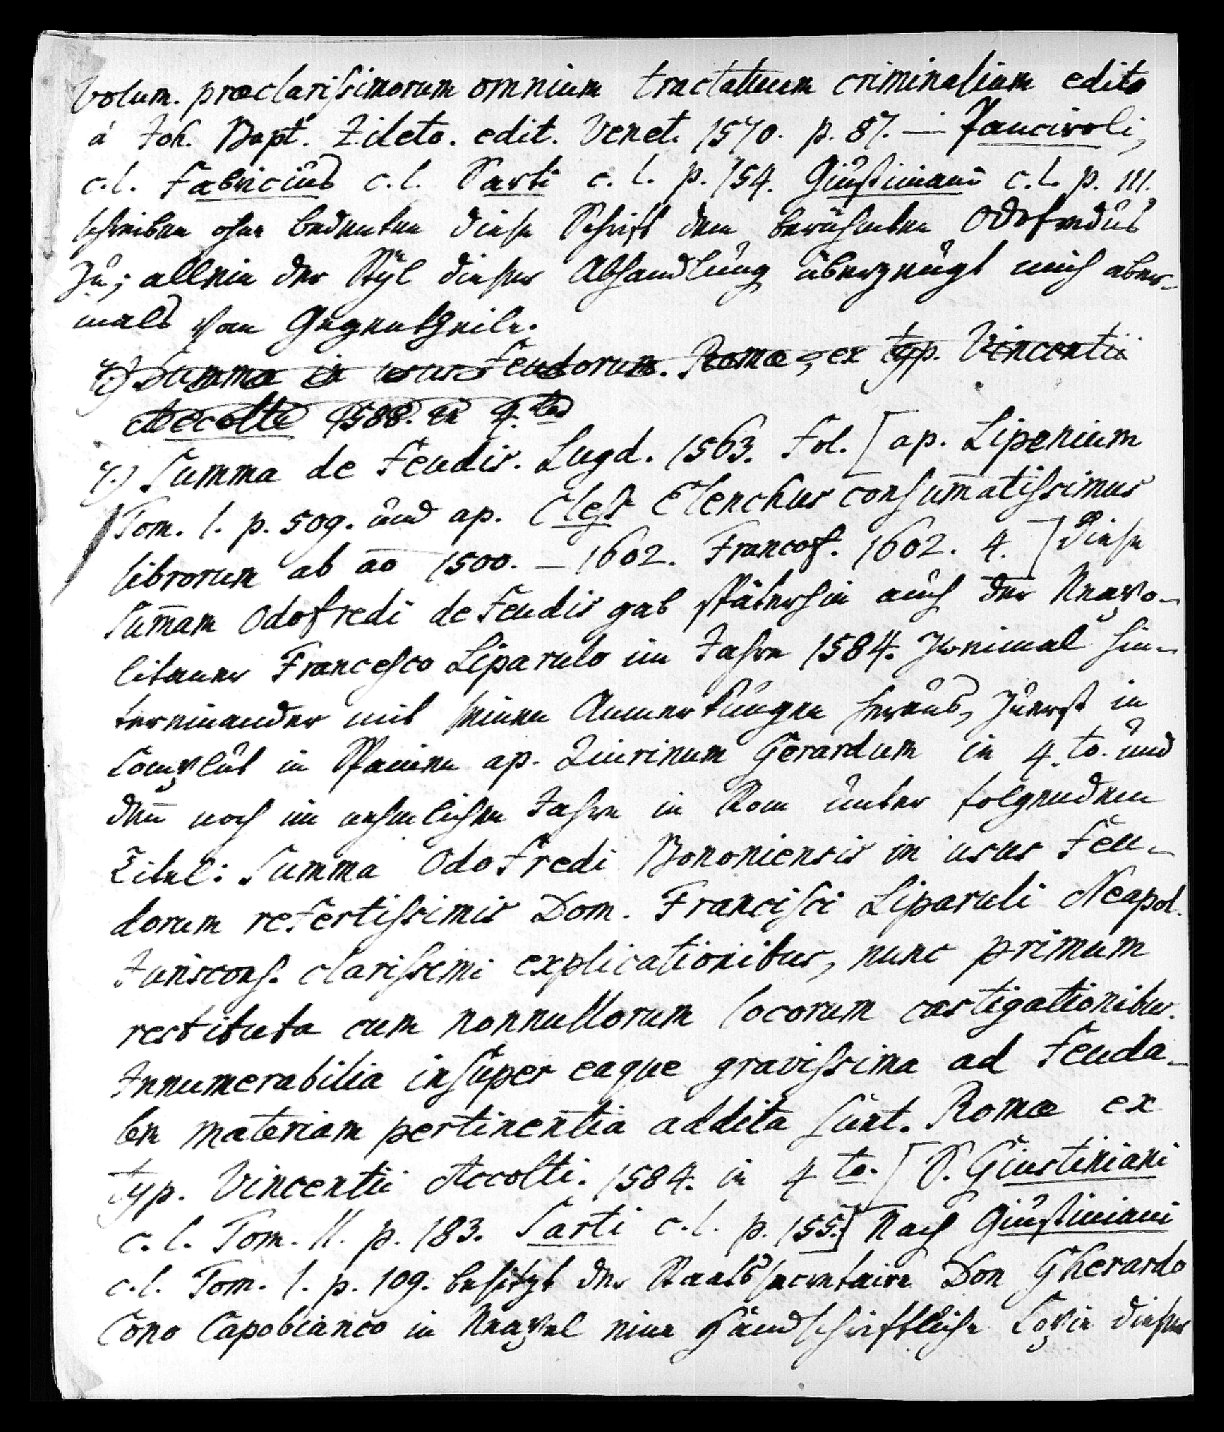 Volum. præclarissimorum omnium tractatuum criminalium edito
à Joh. Bapt. Zileto. edit. Venet. 1570. p. 87. — Panciroli,
c.l. Fabricius c.l. Sarti c.l. p. 154. Giustiniani c.l. p. 111.
schreiben ohne bedenken diese Schrift dem berühmten Odofredus
zu; allein der Styl dieser Abhandlung überzeugt mich aber-
mals vom Gegentheile.
7.) Summa in usus Feudorum. Romæ, ex typ. Vincentii
Accolti 1588. in 4.to
7.) Summa de Feudis. Lugd. 1563. Fol. [ap. Lipenium
Tom. I. p. 509. und ap. Cleß Elenchus consum̄atissimus
librorum ab aō 1500. — 1602. Francof. 1602. 4.] Diese
Sum̄am Odofredi de Feudis gab späterhin auch der Neapo-
litaner Francesco Liparulo im Jahre 1584. zweimal hin-
tereinander mit seinen Anmerkungen heraus, zuerst in
Complut in Spanien ap. Quirinum Gerardum in 4.to. und
den̄ noch im nehmlichen Jahre in Rom unter folgendem
Titel: Summa Odofredi Bononiensis in usus Feu-
dorum refertissimis Dom. Francisci Liparuli Neapol.
Juriscons. clarissimi explicationibus, nunc primum
restituta cum nonnullorum locorum castigationibus.
Innumerabilia insuper eaque gravissima ad Feuda-
lem materiam pertinentia addita sunt. Romæ ex
typ. Vincentii Accolti. 1584. in 4to. [S. Giustiniani
c.l. Tom. II. p. 183. Sarti c.l. p. 155.] Nach Giustiniani
c.l. Tom. I. p. 109. besitzt der Staatssecretaire Don Gherardo
Cono Capobianco in Neapel eine handschriftliche Copie dieser